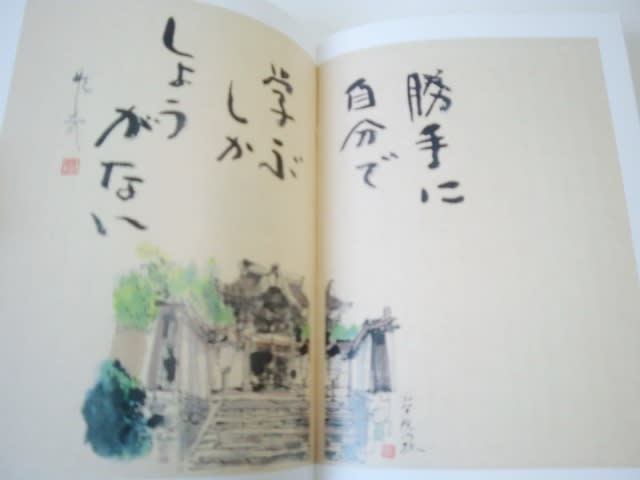 勝手に
自分で
学ぶ
しか
しょう
がない